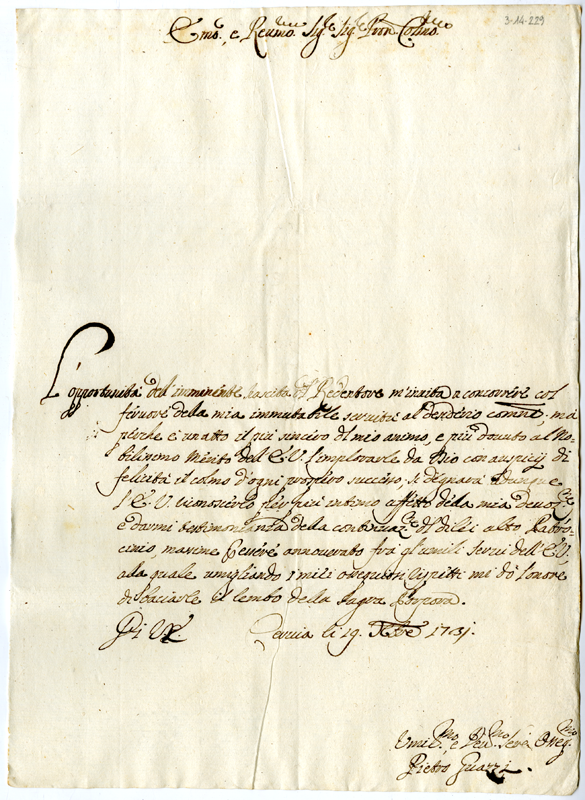 3-14-229
Emo, e Revmo Sigre Sigre Pron Colmo
L'opportunità dell'imminente nascita del Redentore m'invita a concorrere col
fervore della mia immutabile servitù al desiderio comune; ma
perche è un atto il più sincero del mio animo, e più dovuto al No-
bilissimo Merito dell'E.V. l'implorarle da Dio con auspicij di
felicità il colmo d'ogni prospero successo, si degnarà dunque
l'E.V. riconoscerlo per più intimo affetto della mia devozne
e darmi testimonianza della continuazne del di lei alto Patro-
cinio, massime l'essere annoverato frà gl'umili servi dell'E.V.,
alla quale umigliando i miei ossequiosi rispetti mi dò l'onore
di baciarle il lembo della Sagra Porpora.
Di V.E. Cervia li 19. Xbre 1731.
Umilmo, e Devmo Serve Osseqmo
Pietro Guazzi